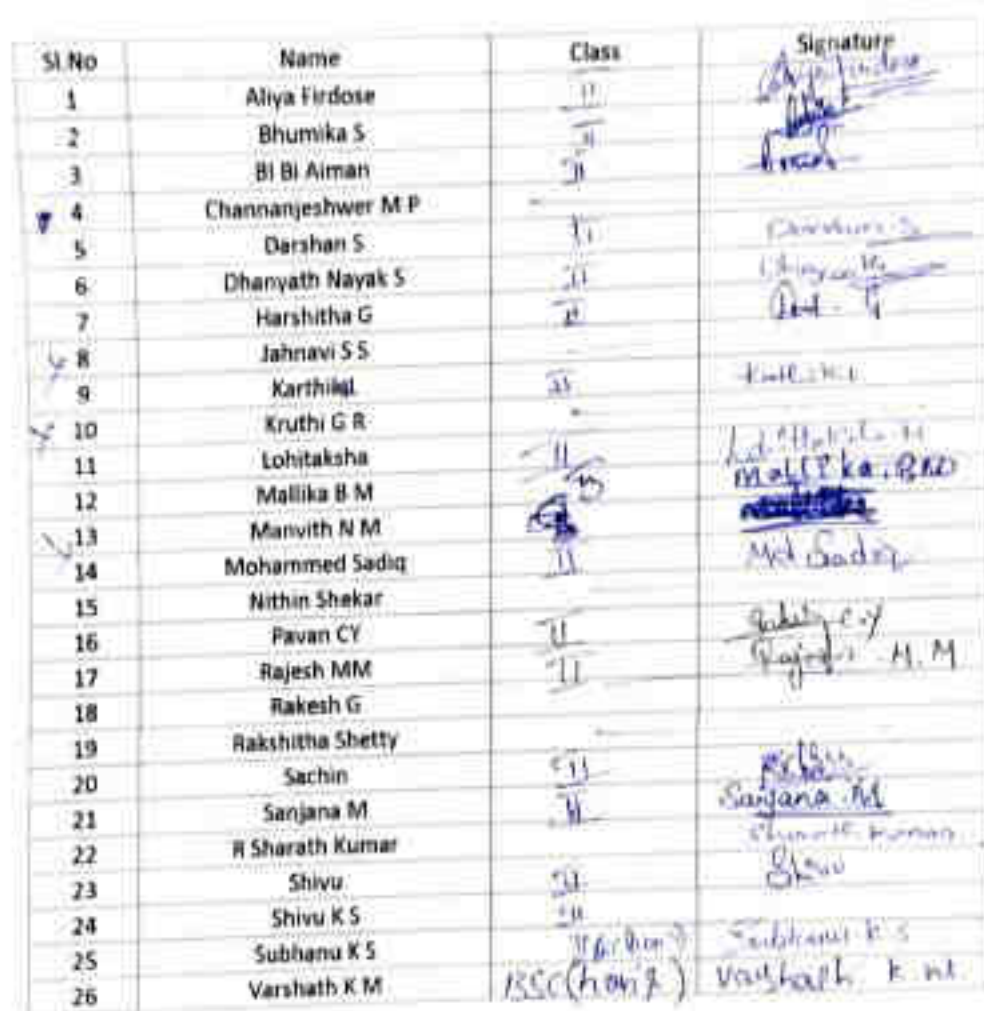 Sl.No Name Class Signature
1 Aliya Firdose II
2 Bhumika S II
3 BI Bi Aiman II
4 Channanjeshwer M P -
5 Darshan S II Darshan S
6 Dhanyath Nayak S II
7 Harshitha G II
8 Jahnavi S S
9 Karthik II
10 Kruthi G R
11 Lohitaksha II
12 Mallika B M Mallika
13 Manvith N M
14 Mohammed Sadiq II Md Sadiq
15 Nithin Shekar
16 Pavan CY II C.Y
17 Rajesh MM II Rajesh M.M
18 Rakesh G
19 Rakshitha Shetty
20 Sachin II
21 Sanjana M II Sanjana .M
22 R Sharath Kumar Sharath kumar
23 Shivu II Shivu
24 Shivu K S II
25 Subhanu K S Subhanu K S
26 Varshath K M BSC(hons) Varshath k m